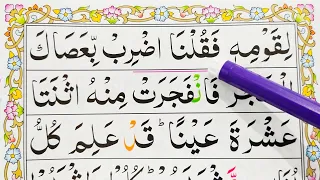 لِقَوْمِهٖ فَقُلْنَا اضْرِبْ بِّعَصَاكَ
الْحَجَرَ فَانْفَجَرَتْ مِنْهُ اثْنَتَا
عَشْرَةَ عَيْنًا ؕ قَدْ عَلِمَ كُلُّ